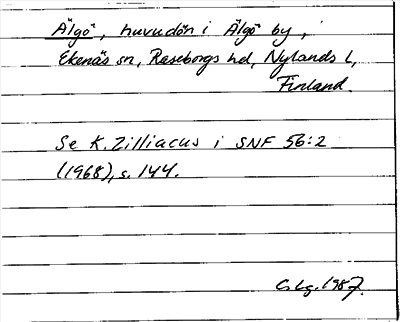 Älgö, huvudön i Älgö by,
Ekenäs sn, Raseborgs hd, Nylands l,
Finland.
Se K. Zilliacus i SNF 56:2
(1968), s. 144.
C. Lg. 1987.